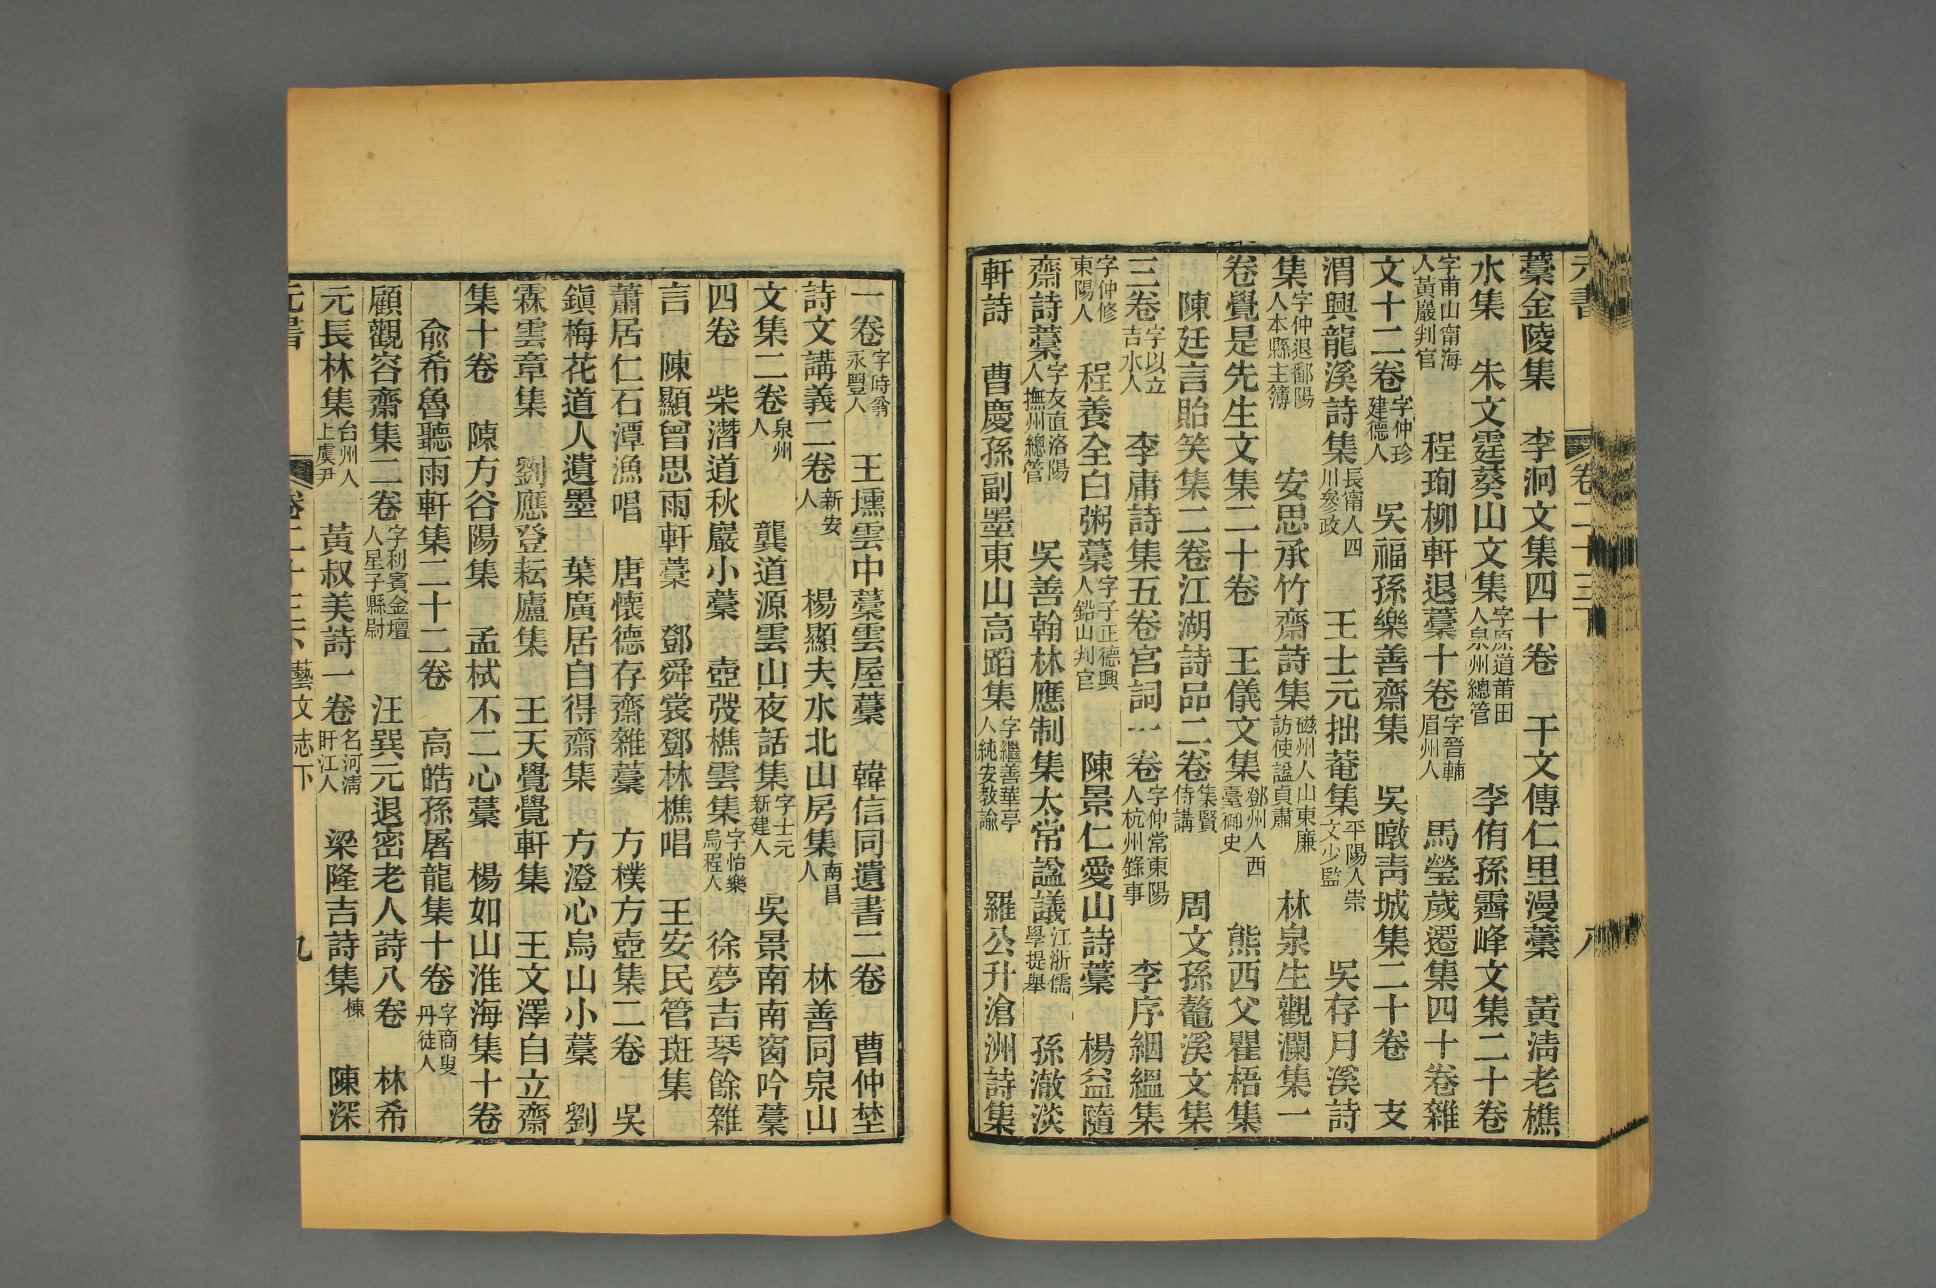 元書 卷二十三下 八
藁金陵集 李泂文集四十卷 干文傳仁里漫藁 黃淸老樵
水集 朱文霆葵山文集字原道莆田人泉州總管 李侑孫霽峰文集二十卷
字甫山甯海人黃巖判官 程珣柳軒退藁十卷字晉輔眉州人 馬瑩歲遷集四十卷雜
文十二卷字仲珍建德人 吳福孫樂善齋集 吳暾靑城集二十卷 支
渭興龍溪詩集長甯人四川參政 王士元拙菴集平陽人崇文少監 吳存月溪詩
集字仲退鄱陽人本縣主簿 安思承竹齋詩集磁州人山東廉訪使諡貞肅 林泉生觀瀾集一
卷覺是先生文集二十卷 王儀文集鄧州人西臺御史 熊西父瞿梧集
陳廷言貽笑集二卷江湖詩品二卷集賢侍講 周文孫鼇溪文集
三卷字以立吉水人 李庸詩集五卷宮詞一卷字仲常東陽人杭州錄事 李序絪縕集
字仲修東陽人 程養全白粥藁字子正德興人鉛山判官 陳景仁愛山詩藁 楊益隨
齋詩藁字友直洛陽人撫州總管 吳善翰林應制集太常諡議江浙儒學提舉 孫澈淡
軒詩 曹慶孫副墨東山高蹈集字繼善華亭人純安敎諭 羅公升滄洲詩集
一卷字時翁永豐人 王壎雲中藁雲屋藁 韓信同遺書二卷 曹仲埜
詩文講義二卷新安人 楊顯夫水北山房集南昌人 林善同泉山
文集二卷泉州人 龔道源雲山夜話集字士元新建人 吳景南南窗吟藁
四卷 柴潛道秋巖小藁 壺弢樵雲集字怡樂烏程人 徐夢吉琴餘雜
言 陳顯曾思雨軒藁 鄧舜裳鄧林樵唱 王安民管斑集
蕭居仁石潭漁唱 唐懷德存齋雜藁 方樸方壺集二卷 吳
鎭梅花道人遺墨 葉廣居自得齋集 方澄心烏山小藁 劉
霖雲章集 劉應登耘廬集 王天覺覺軒集 王文澤自立齋
集十卷 陳方谷陽集 孟栻不二心藁 楊如山淮海集十卷
俞希魯聽雨軒集二十二卷 高皓孫屠龍集十卷字商叟丹徒人
顧觀容齋集二卷字利賓金壇人星子縣尉 汪巽元退密老人詩八卷 林希
元長林集台州人上虞尹 黃叔美詩一卷名河淸盱江人 梁隆吉詩集棟 陳深
元書 卷二十三下 藝文志下 九